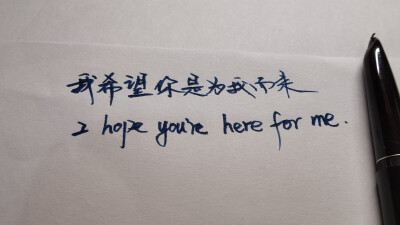 我希望你是为我而来
I hope you're here for me.